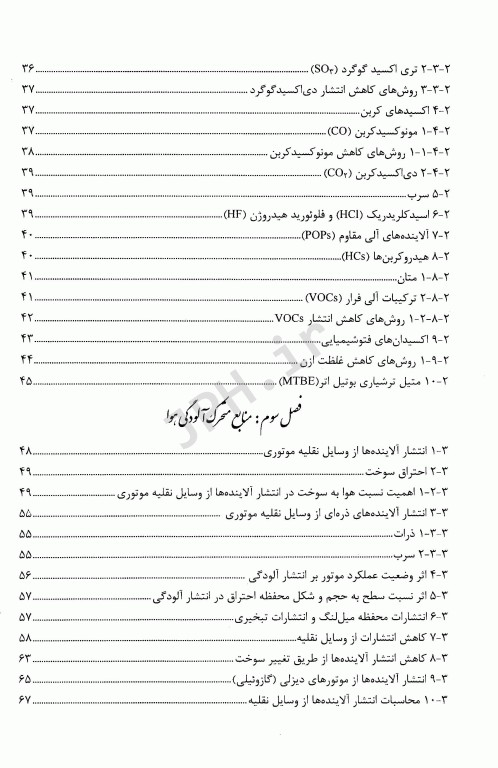 ۲-۳-۲ تری اکسید گوگرد (SO۳) ۳۶
۲-۳-۳ روش‌های کاهش انتشار دی‌اکسیدگوگرد ۳۷
۲-۴ اکسیدهای کربن ۳۷
۲-۴-۱ مونوکسیدکربن (CO) ۳۷
۲-۴-۱-۱ روش‌های کاهش مونوکسیدکربن ۳۸
۲-۴-۲ دی‌اکسیدکربن (CO۲) ۳۹
۲-۵ سرب ۳۹
۲-۶ اسیدکلریدریک (HCl) و فلوئورید هیدروژن (HF) ۳۹
۲-۷ آلاینده‌های آلی مقاوم (POPs) ۴۰
۲-۸ هیدروکربن‌ها (HCs) ۴۰
۲-۸-۱ متان ۴۱
۲-۸-۲ ترکیبات آلی فرار (VOCs) ۴۱
۲-۸-۲-۱ روش‌های کاهش انتشار VOCs ۴۲
۲-۹ اکسیدان‌های فتوشیمیایی ۴۳
۲-۹-۱ روش‌های کاهش غلظت ازن ۴۴
۲-۱۰ متیل ترشیاری بوتیل اتر(MTBE) ۴۵
فصل سوم: منابع متحرک آلودگی هوا
۳-۱ انتشار آلاینده‌ها از وسایل نقلیه موتوری ۴۸
۳-۲ احتراق سوخت ۴۹
۳-۲-۱ اهمیت نسبت هوا به سوخت در انتشار آلاینده‌ها از وسایل نقلیه موتوری ۴۹
۳-۳ انتشار آلاینده‌های ذره‌ای از وسایل نقلیه موتوری ۵۵
۳-۳-۱ ذرات ۵۵
۳-۳-۲ سرب ۵۵
۳-۴ اثر وضعیت عملکرد موتور بر انتشار آلودگی ۵۶
۳-۵ اثر نسبت سطح به حجم و شکل محفظه احتراق در انتشار آلودگی ۵۷
۳-۶ انتشارات محفظه میل‌لنگ و انتشارات تبخیری ۵۷
۳-۷ کاهش انتشارات از وسایل نقلیه ۵۸
۳-۸ کاهش انتشار آلاینده‌ها از طریق تغییر سوخت ۶۳
۳-۹ انتشار آلاینده‌ها از موتورهای دیزلی (گازوئیلی) ۶۵
۳-۱۰ محاسبات انتشار آلاینده‌ها از وسایل نقلیه ۶۷
JPH.ir